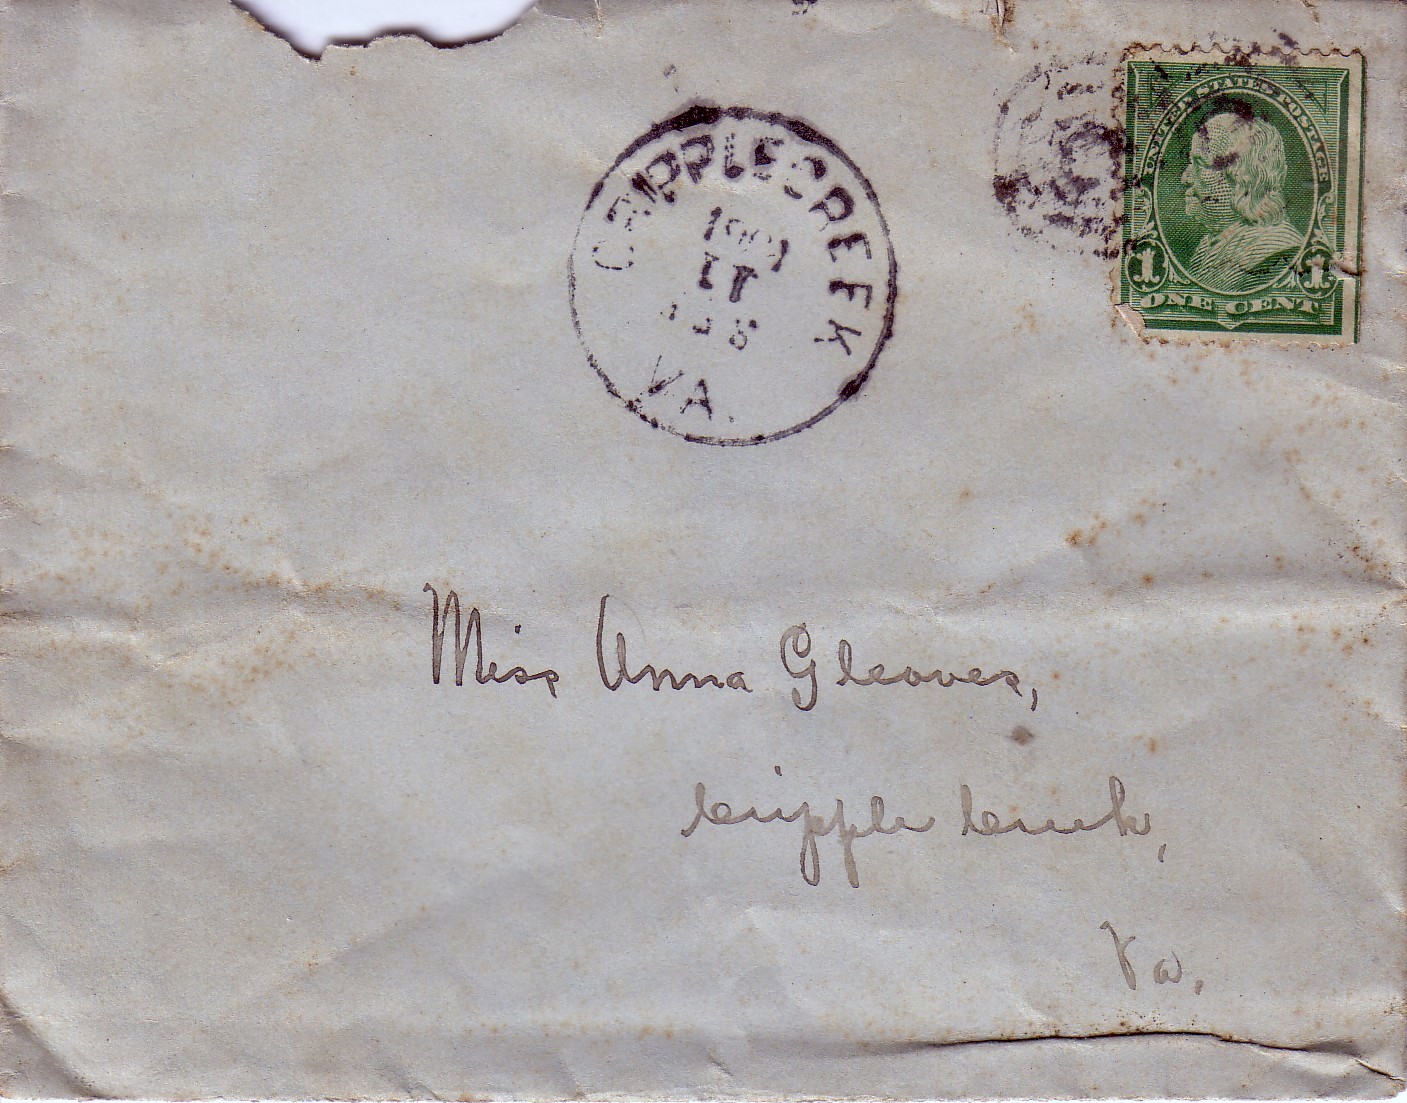 UNITED STATES POSTAGE
1 1
ONE CENT
CRIPPLECREEK
1901
VA.
Miss Anna Gleaves,
Cripple Creek,
Va.